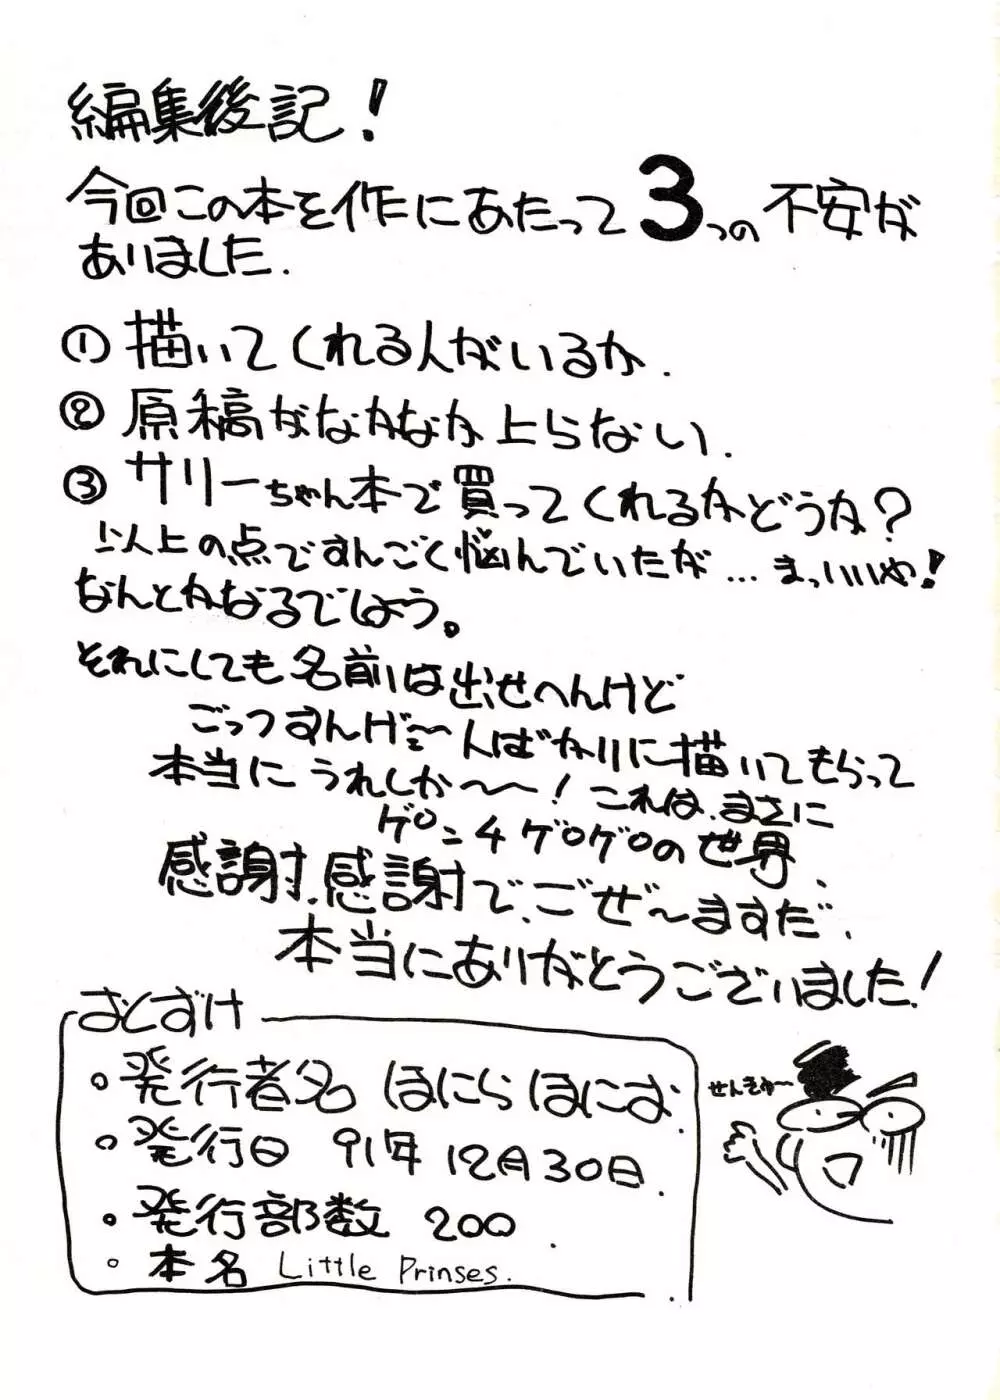 編集後記!
今回この本を作にあたって3つの不安が
ありました.
① 描いてくれる人がいるか.
② 原稿がなかなか上らない.
③ サリーちゃん本で買ってくれるかどうか?
以上の点ですんごく悩んでいたが...まっいいや!
なんとかなるでしょう。
それにしても名前は出せへんけど
ごっつすんげ〜人ばかりに描いてもらって
本当にうれしか〜〜!これは、まさに
ゲロニ4ゲロゲロの世界.
感謝.感謝で.ござ〜ますだ.
本当にありがとうございました!
おくずけ
・発行者名 ほにらほにお
・発行日 91年12月30日.
・発行部数 200.
・本名 Little Prinses.
せんきゅ〜